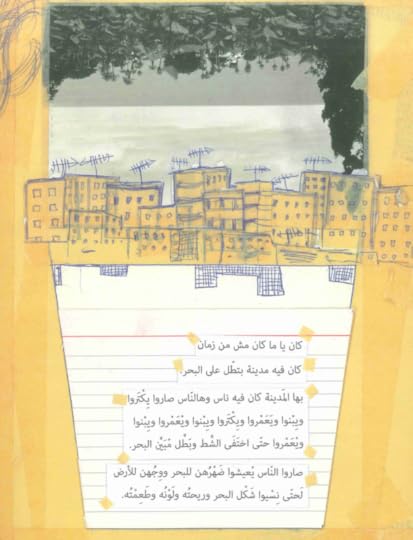 كان يا ما كان مش من زمان
كان فيه مدينة بتطْل على البحر.
بها المَدينة كان فيه ناس وهالنّاس صاروا يِكْتَروا
ويِبْنوا ويَعَمْروا ويِكْتَروا ويِبْنوا ويْعَمْروا ويِبْنوا
ويْعَمْروا حتّى اختَفَى الشَّط وبَطَّل مْبَيِّن البحر.
صاروا النّاس يْعيشوا ضَهْرُهن للبحر ووِجْهن للأرض
لَحتّى نِسْيوا شَكْل البحر وريحتُه ولَوْنُه وطَعِمْتُه.